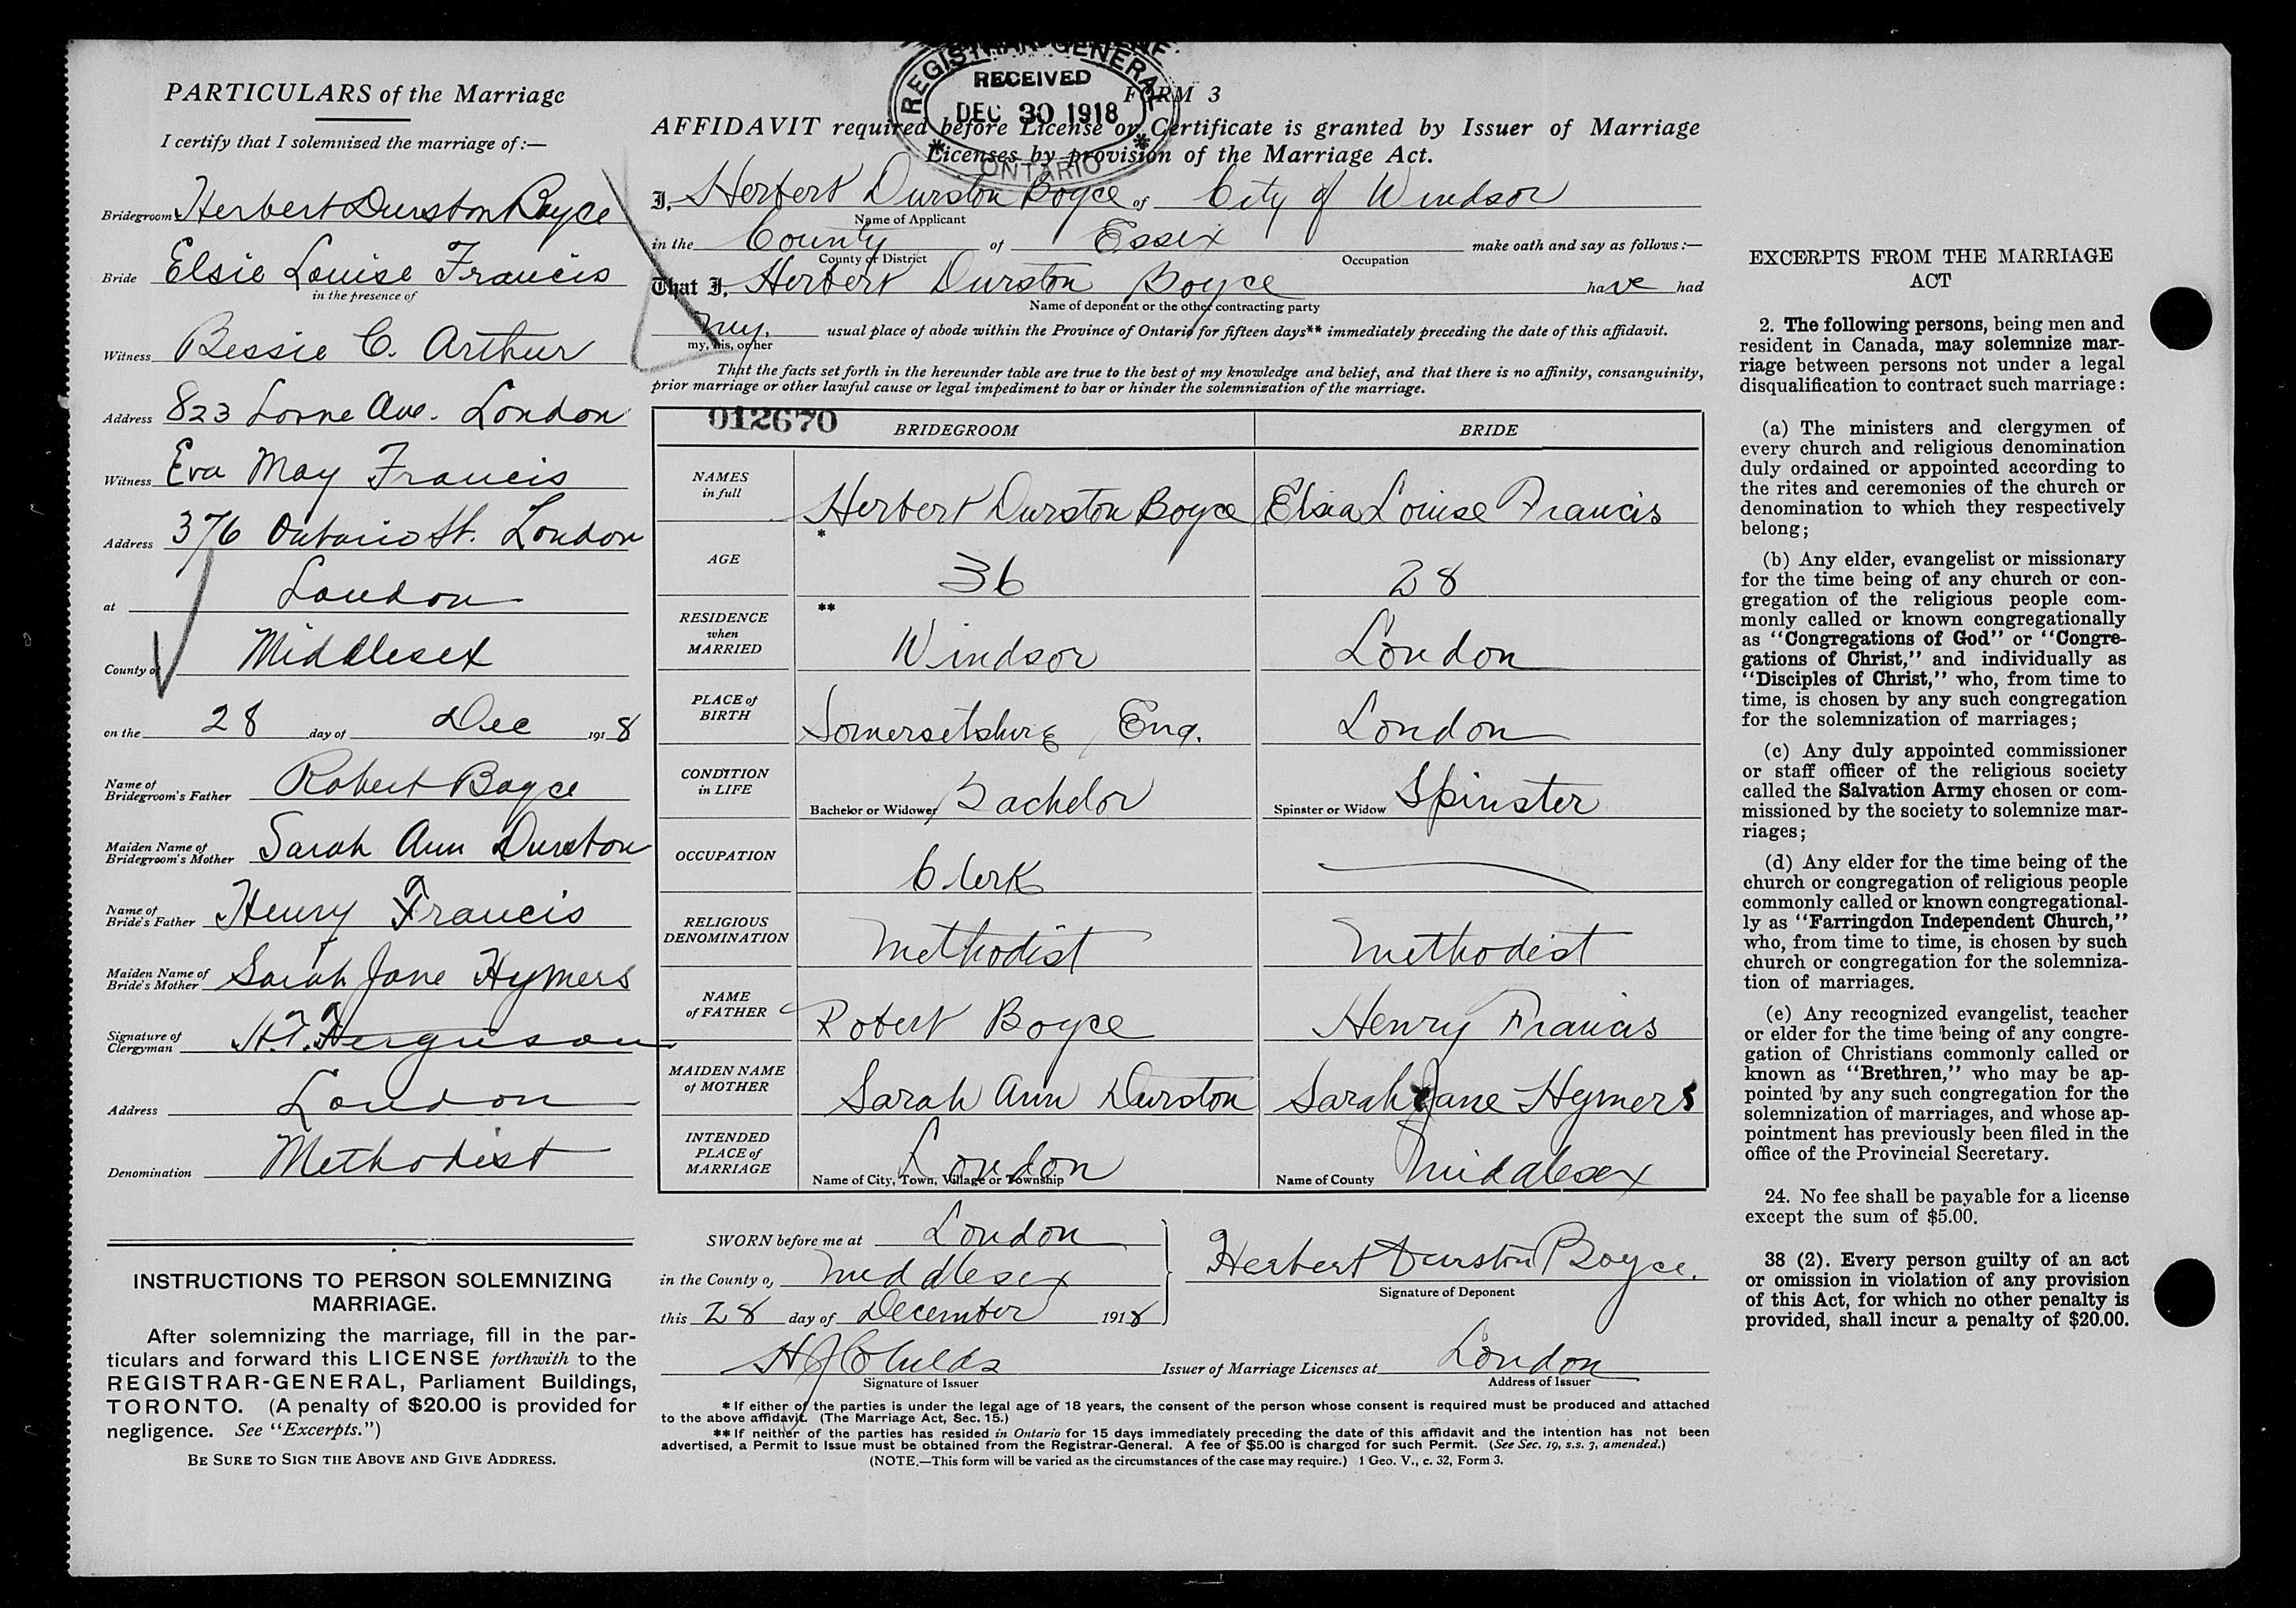 PARTICULARS of the Marriage
I certify that I solemnized the marriage of:—
Bridegroom Herbert Durston Boyce
Bride Elsie Louise Francis
in the presence of
Witness Bessie C. Arthur
Address 823 Lorne Ave. London
Witness Eva May Francis
Address 376 Ontario St. London
at London
County of Middlesex
on the 28 day of Dec 1918
Name of Bridegroom's Father Robert Boyce
Maiden Name of Bridegroom's Mother Sarah Ann Durston
Name of Bride's Father Henry Francis
Maiden Name of Bride's Mother Sarah Jane Hymers
Signature of Clergyman Ferguson
Address London
Denomination Methodist
INSTRUCTIONS TO PERSON SOLEMNIZING
MARRIAGE.
After solemnizing the marriage, fill in the par-
ticulars and forward this LICENSE forthwith to the
REGISTRAR-GENERAL, Parliament Buildings,
TORONTO. (A penalty of $20.00 is provided for
negligence. See "Excerpts.")
BE SURE TO SIGN THE ABOVE AND GIVE ADDRESS.
REGISTRAR GENERAL
RECEIVED
DEC 30 1918
ONTARIO
FORM 3
AFFIDAVIT required before License or Certificate is granted by Issuer of Marriage
Licenses by provision of the Marriage Act.
I, Herbert Durston Boyce of City of Windsor
Name of Applicant
in the County of Essex make oath and say as follows:—
County or District Occupation
That I, Herbert Durston Boyce have had
Name of deponent or the other contracting party
my usual place of abode within the Province of Ontario for fifteen days** immediately preceding the date of this affidavit.
my, his, or her
That the facts set forth in the hereunder table are true to the best of my knowledge and belief, and that there is no affinity, consanguinity,
prior marriage or other lawful cause or legal impediment to bar or hinder the solemnization of the marriage.
012670
BRIDEGROOM BRIDE
NAMES in full Herbert Durston Boyce Elsie Louise Francis
AGE * 36 28
RESIDENCE when MARRIED ** Windsor London
PLACE of BIRTH Somersetshire, Eng. London
CONDITION in LIFE Bachelor or Widower Bachelor Spinster or Widow Spinster
OCCUPATION Clerk —
RELIGIOUS DENOMINATION Methodist Methodist
NAME of FATHER Robert Boyce Henry Francis
MAIDEN NAME of MOTHER Sarah Ann Durston Sarah Jane Hymers
INTENDED PLACE of MARRIAGE London Name of City, Town, Village or Township Name of County Middlesex
SWORN before me at London
in the County of Middlesex
this 28 day of December 1918
Herbert Durston Boyce.
Signature of Deponent
H J Childs Issuer of Marriage Licenses at London
Signature of Issuer Address of Issuer
* If either of the parties is under the legal age of 18 years, the consent of the person whose consent is required must be produced and attached
to the above affidavit. (The Marriage Act, Sec. 15.)
** If neither of the parties has resided in Ontario for 15 days immediately preceding the date of this affidavit and the intention has not been
advertised, a Permit to Issue must be obtained from the Registrar-General. A fee of $5.00 is charged for such Permit. (See Sec. 19, s.s. 3, amended.)
(NOTE.—This form will be varied as the circumstances of the case may require.) 1 Geo. V., c. 32, Form 3.
EXCERPTS FROM THE MARRIAGE
ACT
2. The following persons, being men and
resident in Canada, may solemnize mar-
riage between persons not under a legal
disqualification to contract such marriage:
(a) The ministers and clergymen of
every church and religious denomination
duly ordained or appointed according to
the rites and ceremonies of the church or
denomination to which they respectively
belong;
(b) Any elder, evangelist or missionary
for the time being of any church or con-
gregation of the religious people com-
monly called or known congregationally
as "Congregations of God" or "Congre-
gations of Christ," and individually as
"Disciples of Christ," who, from time to
time, is chosen by any such congregation
for the solemnization of marriages;
(c) Any duly appointed commissioner
or staff officer of the religious society
called the Salvation Army chosen or com-
missioned by the society to solemnize mar-
riages;
(d) Any elder for the time being of the
church or congregation of religious people
commonly called or known congregational-
ly as "Farringdon Independent Church,"
who, from time to time, is chosen by such
church or congregation for the solemniza-
tion of marriages.
(e) Any recognized evangelist, teacher
or elder for the time being of any congre-
gation of Christians commonly called or
known as "Brethren," who may be ap-
pointed by any such congregation for the
solemnization of marriages, and whose ap-
pointment has previously been filed in the
office of the Provincial Secretary.
24. No fee shall be payable for a license
except the sum of $5.00.
38 (2). Every person guilty of an act
or omission in violation of any provision
of this Act, for which no other penalty is
provided, shall incur a penalty of $20.00.